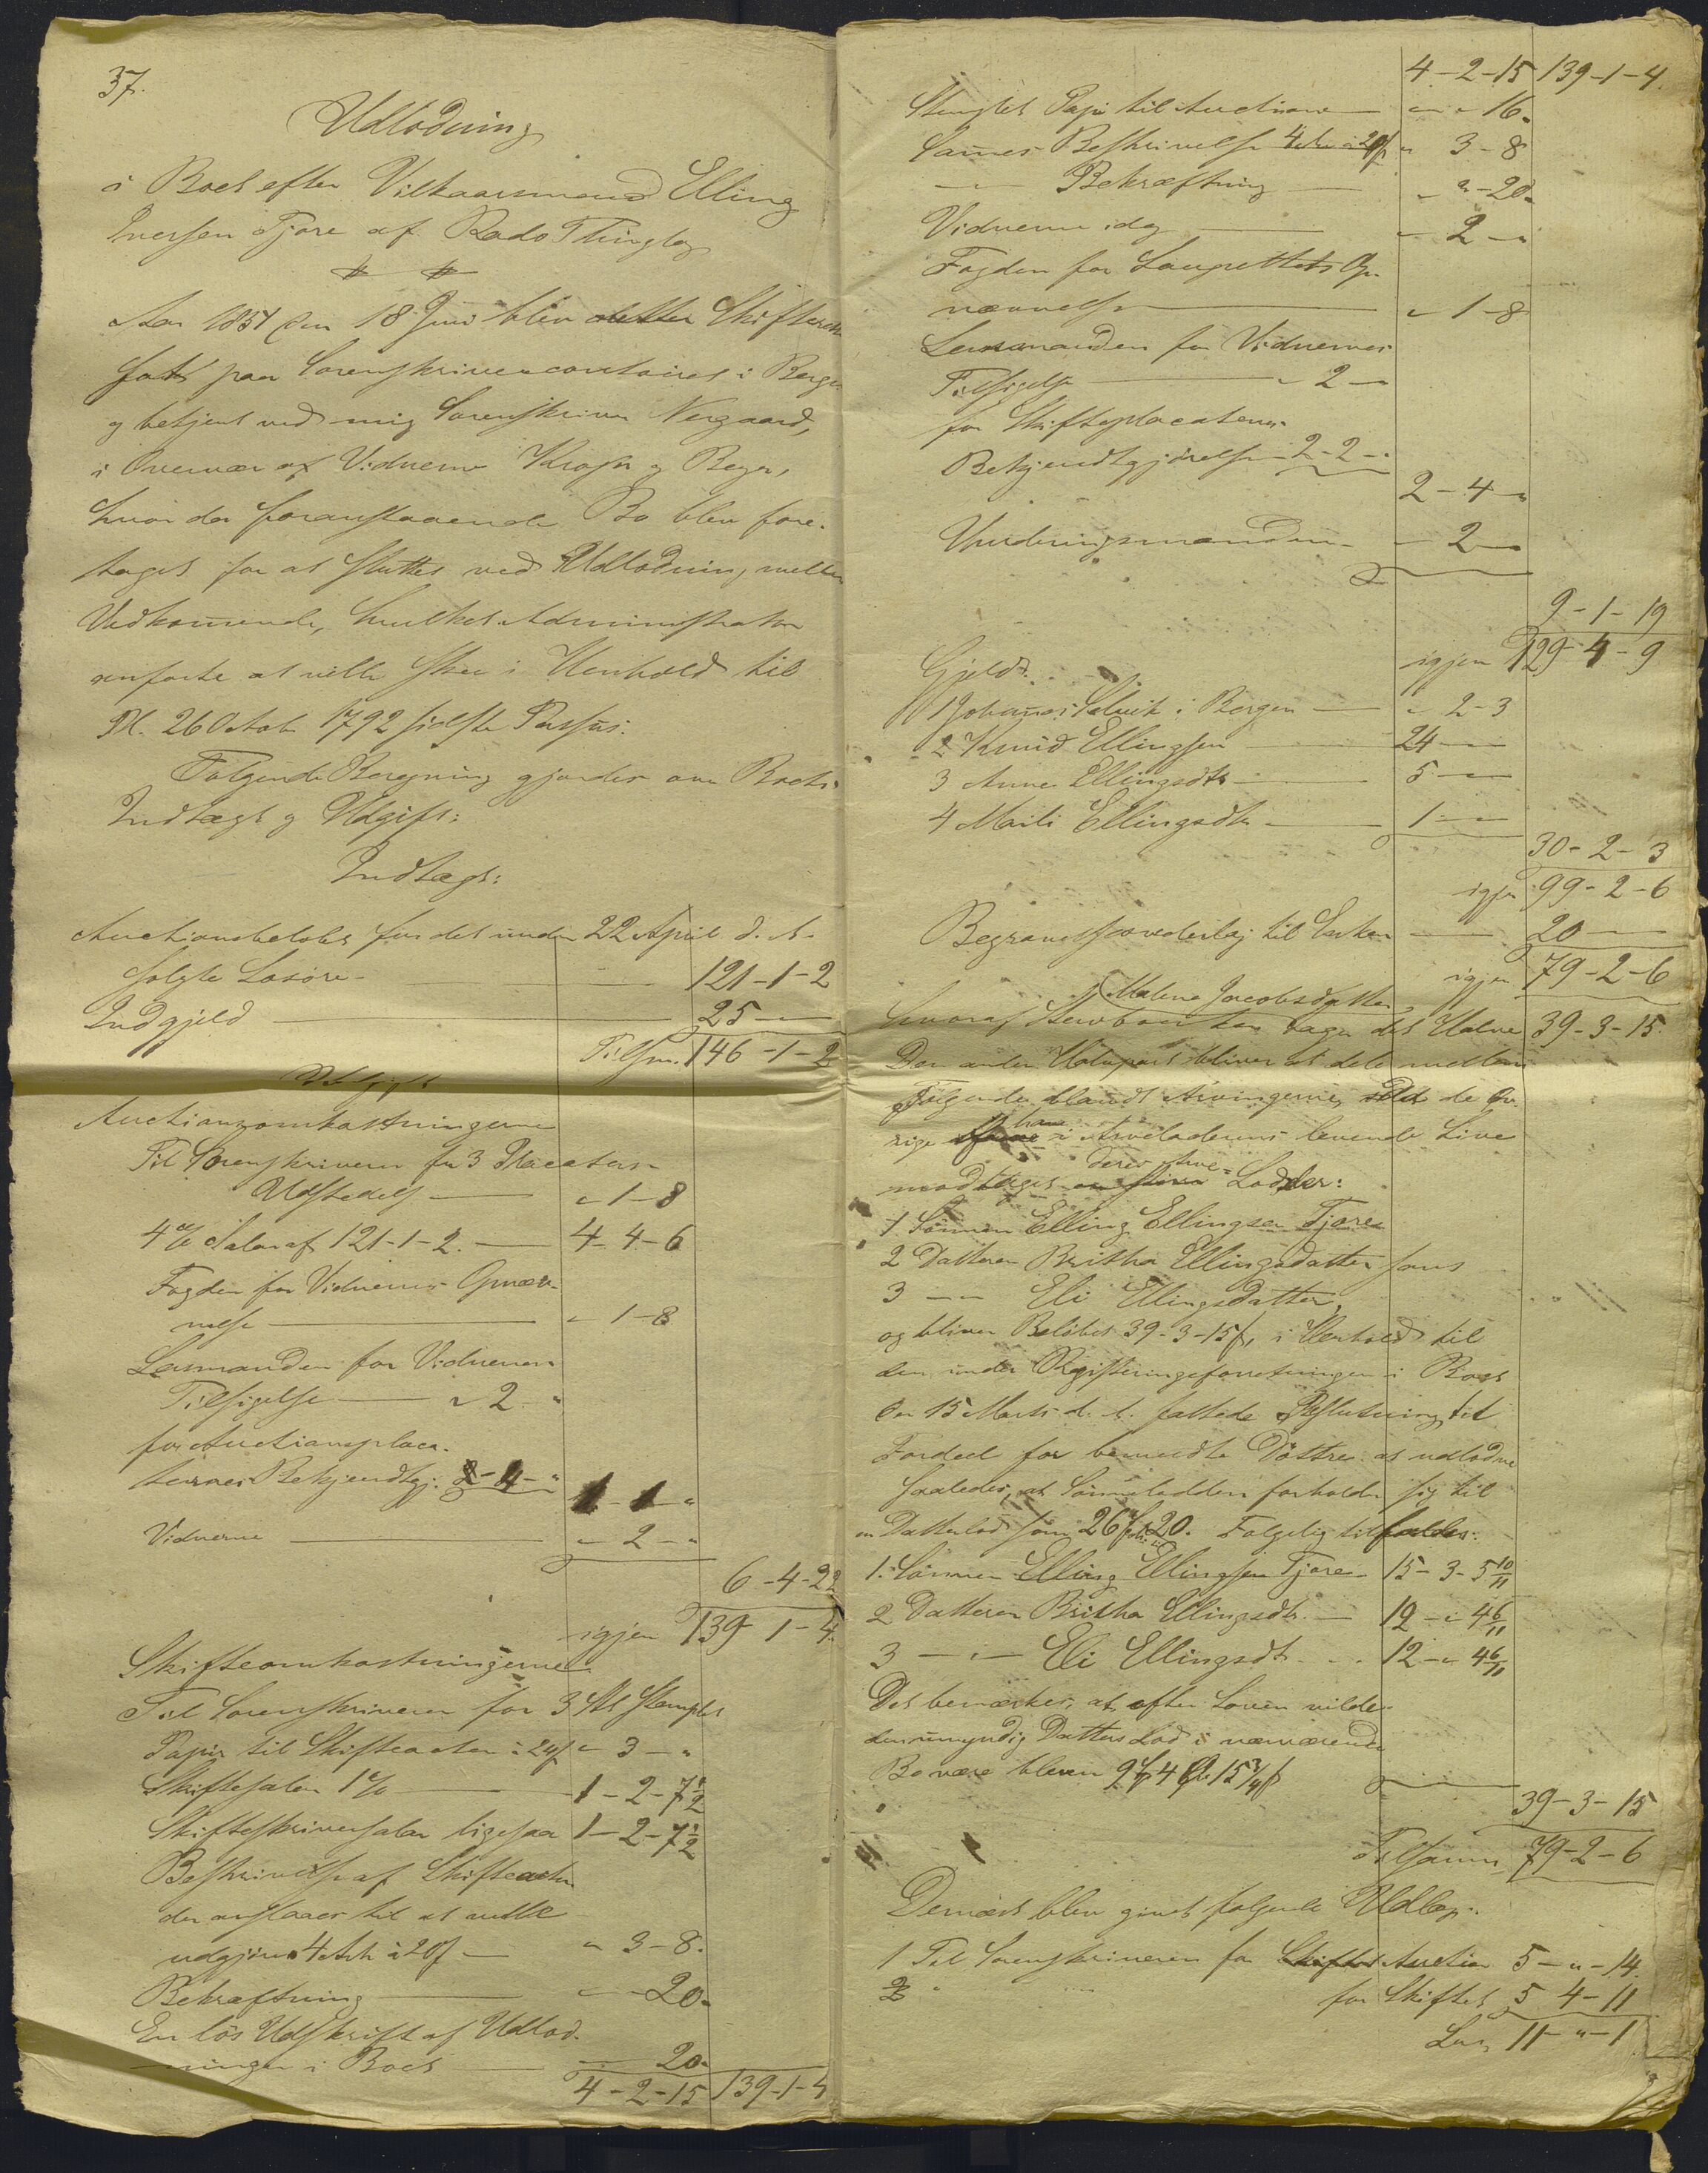 37.
Udlodning
i Boet efter Vilkaarsmand Elling
Iversen Tjore af Rado Thinglag
Aar 1851 den 18 Juni blev Skifteret
sat paa Sorenskrivercontoiret i Bergen
og betjent ved mig Sorenskriver Nergaard,
i Overvær af Vidnerne og Beyer,
hvor da foranstaaende Bo blev fore-
taget for at sluttes ved Udlodning mellem
Vedkommende, hvilket Administrator
anforte at ville skee i Henhold til
Pl. 26 Octob 1792 sidste Passus:
Folgende Beregning gjordes over Boets
Indtægt og Udgift:
Indtægt:
Auctionsbelobet for det under 22 April d. A.
solgte Losore 121-1-2
Indgjeld 25
Tilsm. 146-1-2
Udgift
Auctionsomkostningerne
Til Sorenskriveren for 3 Placaters
Udstedelse " 1-8
4 % Salar af 121-1-2. 4-4-6
Fogden for Vidnernes Opnæv-
nelse " 1-8
Lensmanden for Vidnernes
Tilsigelse " 2 - "
for Auctionsplaca-
ternes Bekjendtgj:
Vidnerne " 2 - "
6-4-22
igjen 139-1-4
Skifteomkostningerne
Til Sorenskriveren for 3 Stemplet
Papir til Skifteacten à 24 f " 3 - "
Skiftesalar 1 % 1-2-7½
Skifteskriversalar ligesaa 1-2-7½
Beskrivelse af Skifteacten
der anslaaes til at ville
udgjøre 4 Ark à 20 f " 3-8.
Bekræftning " - 20.
En lös Udskrift af Udlod-
ningen i Boet 20.
4-2-15 139-1-4
4-2-15 139-1-4.
Stemplet Papir til Auctionen " " 16.
Sammes Beskrivelse 4 Ark à 20 f " 3-8
" Bekræftning " " - 20.
Vidnerne idag " 2 - "
Fogden for Laugrettets Op-
nævnelse " 1-8
Lensmanden for Vidnernes
Tilsigelse " 2 - "
for Skifteplacaternes
Bekjendtgjörelse 2-2-"
2-4-"
Vurderingsmændene - 2 - "
9-1-19
igjen 129-4-9
Gjeld:
1 Johannes i Bergen " 2-3
2 Knud Ellingsen 24 -
3 Anne Ellingsdtr 5 -
4 Marli Ellingsdtr 1 -
30-2-3
igjen 99-2-6
Begravelsesvederlag til Enken 20
igjen 79-2-6
Malene Jacobsdatter
hvoraf tager det Halve 39-3-15.
Den anden Halvpart bliver at dele mellem
Følgende blandt Arvingerne, de öv-
rige have i Arveladerens levende Live
modtaget deres Arve- Lodder:
1 Sönnen Elling Ellingsen Tjore
2 Datteren Britha Ellingsdatter
3 " Eli Ellingsdatter,
og bliver Belöbet 39-3-15 f, i Henhold til
den under Registeringsforretningen i Boet
den 15 Marts d. A. fattede Beslutning, til
Fordeel for bemeldte Döttre at udlodne
saaledes, at Sönnelodden forholder sig til
en Datterlod som 26 20. Folgelig tilfalder:
1. Sönnen Elling Ellingsen Tjore 15-3-5 10/11
2 Datteren Britha Ellingsdtr. 12 - " 4 6/11
3 " Eli Ellingsdtr. 12 - " 4 6/11
Det bemærkes, at efter Loven vilde
den umyndig Datters Lod i nærværende
Bo være bleven
39-3-15
Tilsammen 79-2-6
Dernæst blev givet folgende Udlæg:
1 Til Sorenskriveren for Auction 5 - " - 14.
2 " for Skiftet 5 4-11
Lar. 11-"-1